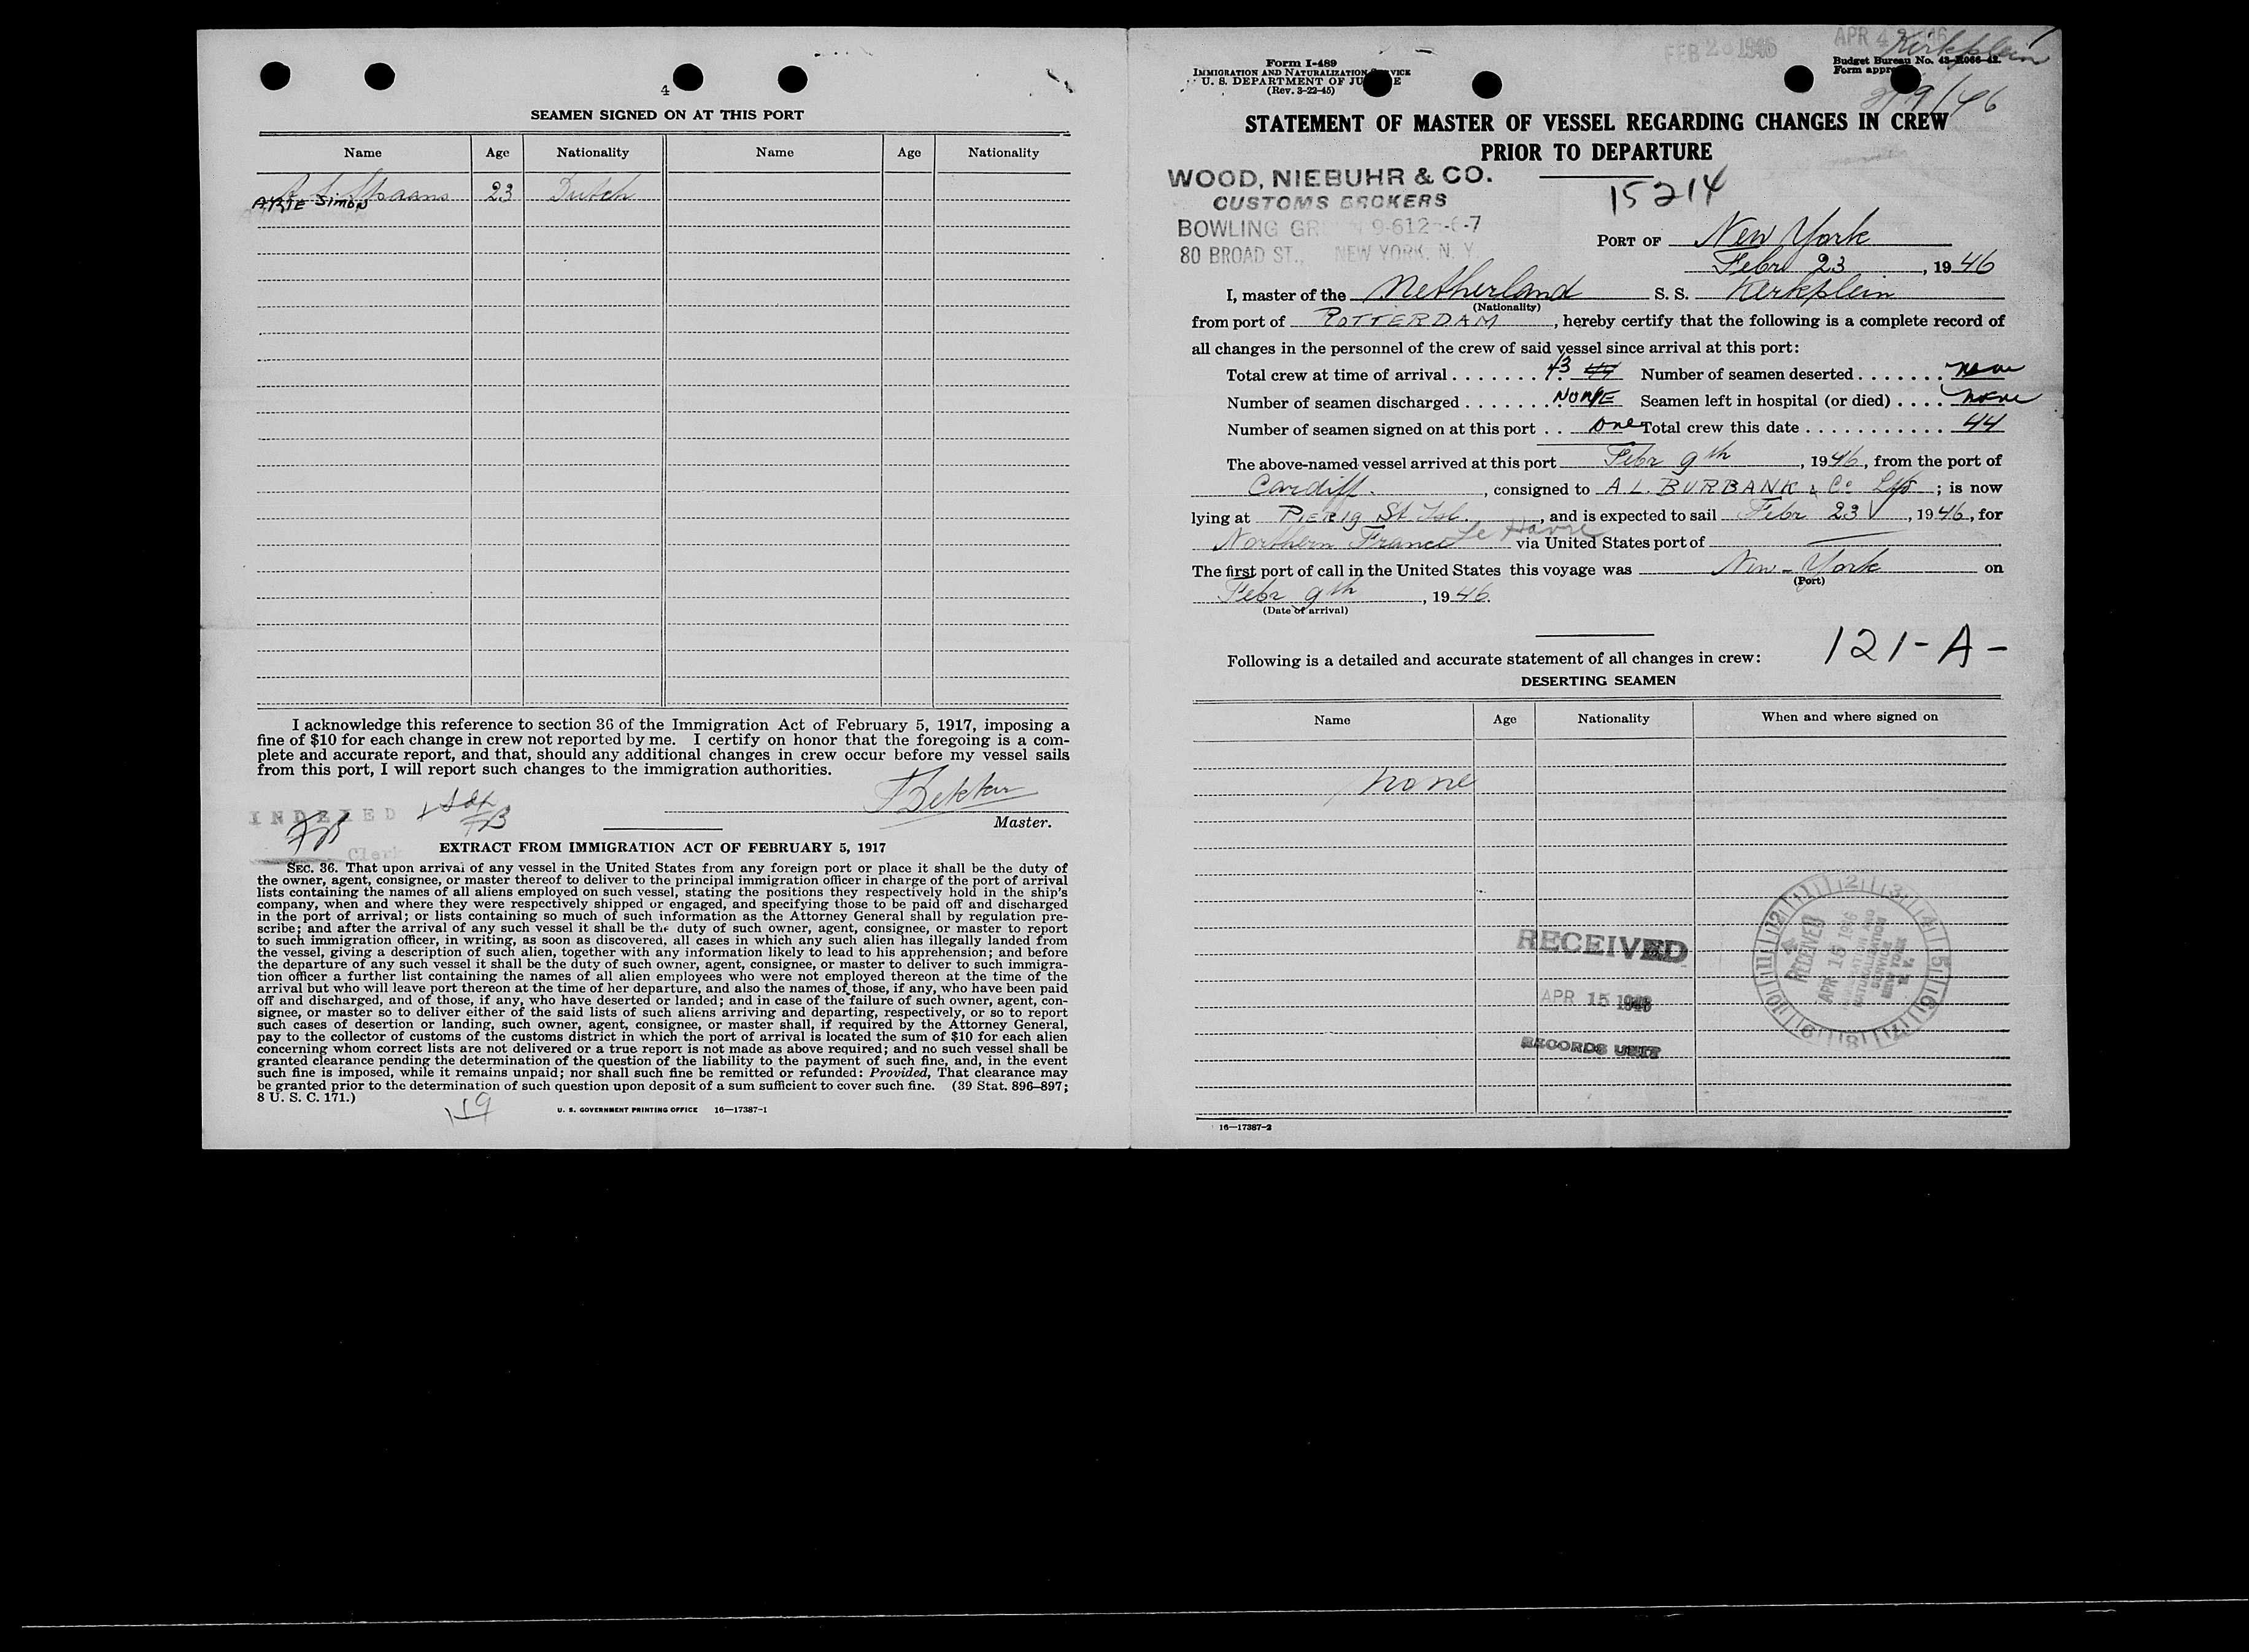 4
SEAMEN SIGNED ON AT THIS PORT
Name Age Nationality Name Age Nationality
A. S. Spaans 23 Dutch
ARIE SIMON
I acknowledge this reference to section 36 of the Immigration Act of February 5, 1917, imposing a
fine of $10 for each change in crew not reported by me. I certify on honor that the foregoing is a com-
plete and accurate report, and that, should any additional changes in crew occur before my vessel sails
from this port, I will report such changes to the immigration authorities.
Master.
INDEXED
Clerk
EXTRACT FROM IMMIGRATION ACT OF FEBRUARY 5, 1917
SEC. 36. That upon arrival of any vessel in the United States from any foreign port or place it shall be the duty of
the owner, agent, consignee, or master thereof to deliver to the principal immigration officer in charge of the port of arrival
lists containing the names of all aliens employed on such vessel, stating the positions they respectively hold in the ship's
company, when and where they were respectively shipped or engaged, and specifying those to be paid off and discharged
in the port of arrival; or lists containing so much of such information as the Attorney General shall by regulation pre-
scribe; and after the arrival of any such vessel it shall be the duty of such owner, agent, consignee, or master to report
to such immigration officer, in writing, as soon as discovered, all cases in which any such alien has illegally landed from
the vessel, giving a description of such alien, together with any information likely to lead to his apprehension; and before
the departure of any such vessel it shall be the duty of such owner, agent, consignee, or master to deliver to such immigra-
tion officer a further list containing the names of all alien employees who were not employed thereon at the time of the
arrival but who will leave port thereon at the time of her departure, and also the names of those, if any, who have been paid
off and discharged, and of those, if any, who have deserted or landed; and in case of the failure of such owner, agent, con-
signee, or master so to deliver either of the said lists of such aliens arriving and departing, respectively, or so to report
such cases of desertion or landing, such owner, agent, consignee, or master shall, if required by the Attorney General,
pay to the collector of customs of the customs district in which the port of arrival is located the sum of $10 for each alien
concerning whom correct lists are not delivered or a true report is not made as above required; and no such vessel shall be
granted clearance pending the determination of the question of the liability to the payment of such fine, and, in the event
such fine is imposed, while it remains unpaid; nor shall such fine be remitted or refunded: Provided, That clearance may
be granted prior to the determination of such question upon deposit of a sum sufficient to cover such fine. (39 Stat. 896–897;
8 U. S. C. 171.)
U. S. GOVERNMENT PRINTING OFFICE 16—17387-1
Form I-489
IMMIGRATION AND NATURALIZATION SERVICE
U. S. DEPARTMENT OF JUSTICE
(Rev. 3-22-45)
Kirkplein
Budget Bureau No.
Form
2/9/46
STATEMENT OF MASTER OF VESSEL REGARDING CHANGES IN CREW
PRIOR TO DEPARTURE
WOOD, NIEBUHR & CO.
CUSTOMS BROKERS
BOWLING
80 BROAD ST., NEW YORK, N. Y.
15214
PORT OF New York
Febr 23, 1946
I, master of the Netherland S. S. Kerkplein
(Nationality)
from port of ROTTERDAM, hereby certify that the following is a complete record of
all changes in the personnel of the crew of said vessel since arrival at this port:
Total crew at time of arrival 43 44 Number of seamen deserted none
Number of seamen discharged NONE Seamen left in hospital (or died) none
Number of seamen signed on at this port one Total crew this date 44
The above-named vessel arrived at this port Febr 9th, 1946, from the port of
Cardiff., consigned to A. L. BURBANK & Co; is now
lying at PIER 19 St. Isl., and is expected to sail Febr 23, 1946, for
Northern France Le Havre via United States port of
The first port of call in the United States this voyage was New-York on
(Port)
Febr 9th, 1946.
(Date of arrival)
Following is a detailed and accurate statement of all changes in crew: 121-A-
DESERTING SEAMEN
Name Age Nationality When and where signed on
none
RECEIVED
APR 15 1946
RECORDS UNIT
RECEIVED
APR 15 1946
IMMIGRATION AND
NATURALIZATION
SERVICE
NEW YORK
N. Y.
16—17387-2